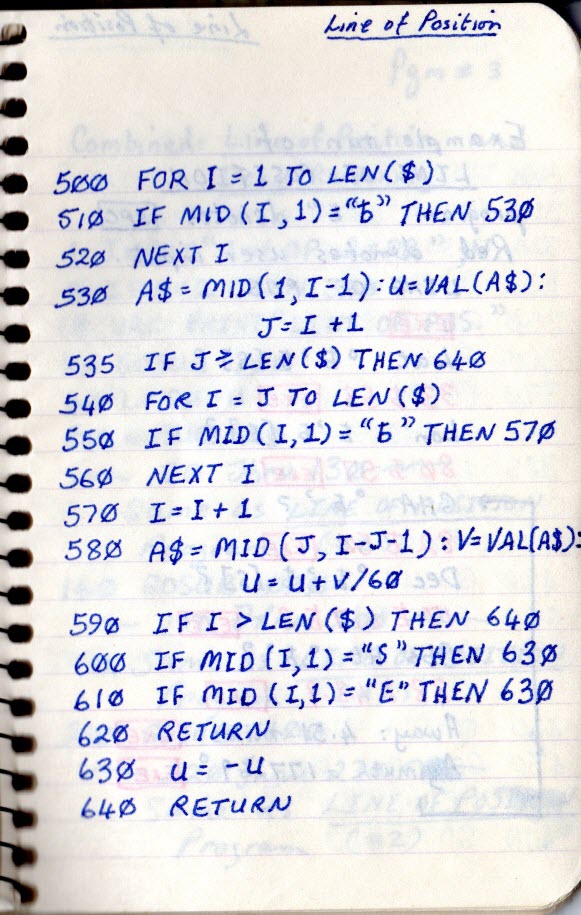 Line of Position
500 FOR I = 1 TO LEN($)
510 IF MID(I,1)="ƀ" THEN 530
520 NEXT I
530 A$ = MID(1,I-1):U=VAL(A$):
J=I+1
535 IF J≥LEN($) THEN 640
540 FOR I = J TO LEN($)
550 IF MID(I,1)="ƀ" THEN 570
560 NEXT I
570 I=I+1
580 A$= MID(J,I-J-1):V=VAL(A$):
U=U+V/60
590 IF I>LEN($) THEN 640
600 IF MID(I,1)="S" THEN 630
610 IF MID(I,1)="E" THEN 630
620 RETURN
630 U=-U
640 RETURN